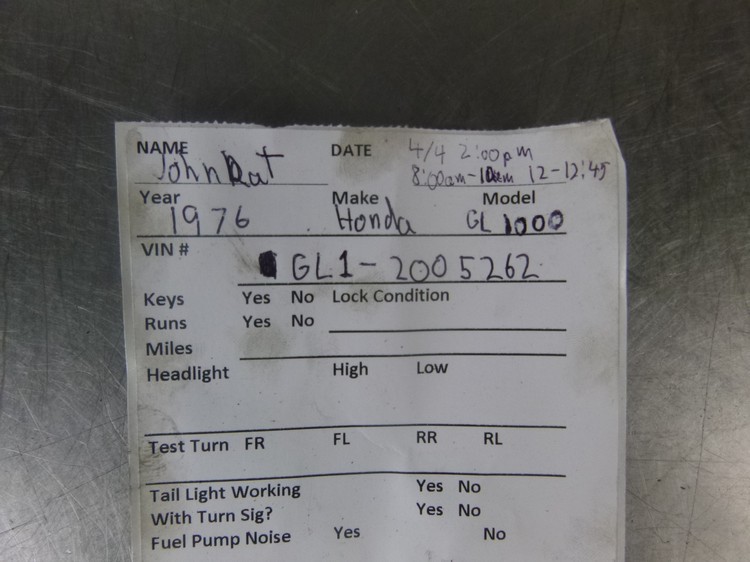 NAME John Rat DATE 4/4 2:00pm
8:00am-10am 12-12:45
Year Make Model
1976 Honda GL 1000
VIN #
GL1-2005262
Keys Yes No Lock Condition
Runs Yes No
Miles
Headlight High Low
Test Turn FR FL RR RL
Tail Light Working Yes No
With Turn Sig? Yes No
Fuel Pump Noise Yes No